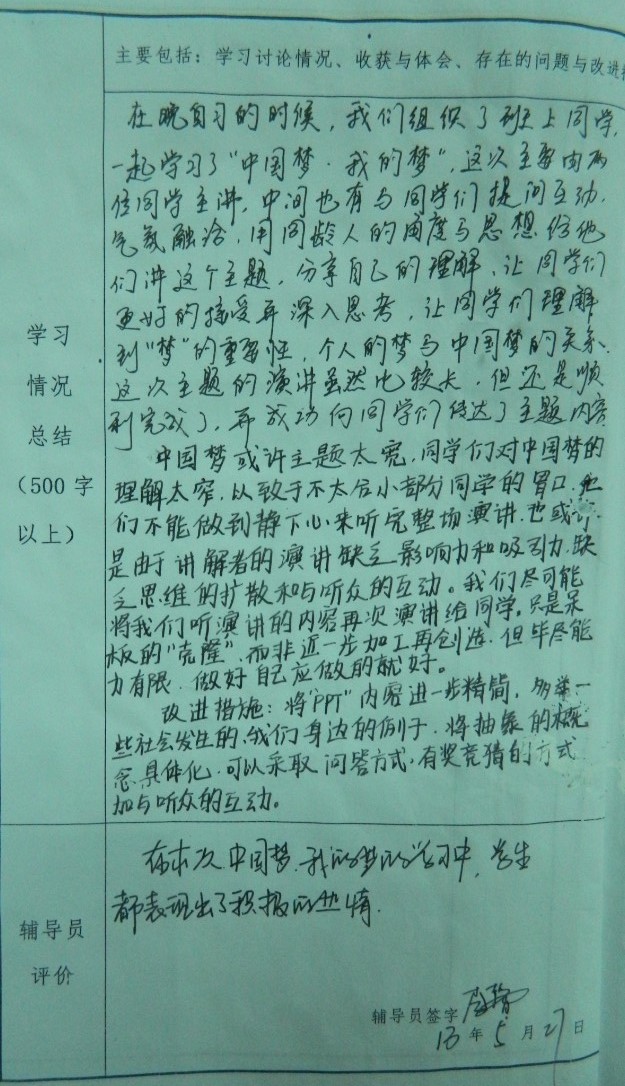 主要包括：学习讨论情况、收获与体会、存在的问题与改进
在晚自习的时候，我们组织了班上同学，
一起学习了"中国梦·我的梦"，这次主要由两
位同学主讲，中间也有与同学们提问互动，
气氛融洽，用同龄人的角度与思想给他
们讲这个主题，分享自己的理解，让同学们
更好的接受并深入思考，让同学们理解
到"梦"的重要性，个人的梦与中国梦的关系。
这次主题的演讲虽然比较长，但还是顺
利完成了，并成功向同学们传达了主题内容
中国梦或许主题太宽，同学们对中国梦的
理解太窄，以致于不太合小部分同学的胃口，他
们不能做到静下心来听完整场演讲，也或许
是由于讲解者的演讲缺乏影响力和吸引力，缺
乏思维的扩散和与听众的互动。我们尽可能
将我们听演讲的内容再次演讲给同学，只是呆
板的"克隆"，而非近一步加工再创造，但毕尽能
力有限，做好自己应做的就好。
改进措施：将"PPT"内容进一步精简，多举一
些社会发生的、我们身边的例子，将抽象的概
念具体化，可以采取问答方式，有奖竞猜的方式
加与听众的互动。
学习
情况
总结
（500字
以上）
在本次中国梦，我的梦的学习中，学生
都表现出了积极的热情.
辅导员
评价
辅导员签字
13年5月27日